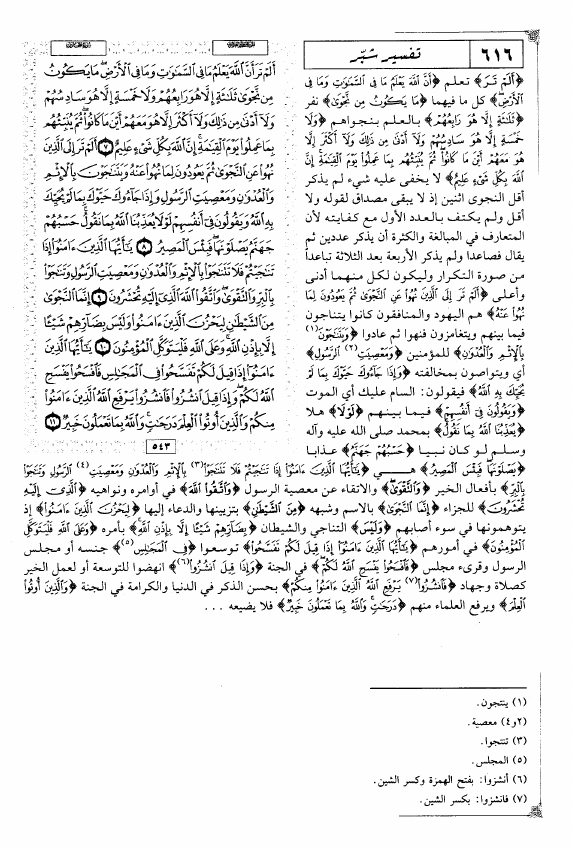 ٦١٦
تفسير شبّر
﴿أَلَمْ تَرَ﴾ تعلم ﴿أَنَّ اللَّهَ يَعْلَمُ مَا فِى السَّمَاوَاتِ وَمَا فِى
الْأَرْضِ﴾ كل ما فيهما ﴿مَا يَكُونُ مِن نَّجْوَىٰ﴾ نفر
﴿ثَلَاثَةٍ إِلَّا هُوَ رَابِعُهُمْ﴾ بالعلم بنجواهم ﴿وَلَا
خَمْسَةٍ إِلَّا هُوَ سَادِسُهُمْ وَلَا أَدْنَىٰ مِن ذَٰلِكَ وَلَا أَكْثَرَ إِلَّا
هُوَ مَعَهُمْ أَيْنَ مَا كَانُوا ثُمَّ يُنَبِّئُهُم بِمَا عَمِلُوا يَوْمَ الْقِيَامَةِ إِنَّ
اللَّهَ بِكُلِّ شَىْءٍ عَلِيمٌ﴾ لا يخفى عليه شيء لم يذكر
أقل النجوى اثنين إذ لا يبقى مصداق لقوله ولا
أقل ولم يكتف بالعدد الأول مع كفايته لأن
المتعارف في المبالغة والكثرة أن يذكر عددين ثم
يقال فصاعدا ولم يذكر الأربعة بعد الثلاثة تباعداً
من صورة التكرار وليكون لكل منهما أدنى
وأعلى ﴿أَلَمْ تَرَ إِلَى الَّذِينَ نُهُوا عَنِ النَّجْوَىٰ ثُمَّ يَعُودُونَ لِمَا
نُهُوا عَنْهُ﴾ هم اليهود والمنافقون كانوا يتناجون
فيما بينهم ويتغامزون فنهوا ثم عادوا ﴿وَيَتَنَاجَوْنَ(١)
بِالْإِثْمِ وَالْعُدْوَانِ﴾ للمؤمنين ﴿وَمَعْصِيَتِ(٢) الرَّسُولِ﴾
أي ويتواصون بمخالفته ﴿وَإِذَا جَاءُوكَ حَيَّوْكَ بِمَا لَمْ
يُحَيِّكَ بِهِ اللَّهُ﴾ فيقولون: السام عليك أي الموت
﴿وَيَقُولُونَ فِى أَنفُسِهِمْ﴾ فيما بينهم ﴿لَوْلَا﴾ هلا
﴿يُعَذِّبُنَا اللَّهُ بِمَا نَقُولُ﴾ بمحمد صلى الله عليه وآله
وسلم لو كان نبيا ﴿حَسْبُهُمْ جَهَنَّمُ﴾ عذابا
أَلَمْ تَرَ أَنَّ اللَّهَ يَعْلَمُ مَا فِى السَّمَاوَاتِ وَمَا فِى الْأَرْضِ مَا يَكُونُ
مِن نَّجْوَىٰ ثَلَاثَةٍ إِلَّا هُوَ رَابِعُهُمْ وَلَا خَمْسَةٍ إِلَّا هُوَ سَادِسُهُمْ
وَلَا أَدْنَىٰ مِن ذَٰلِكَ وَلَا أَكْثَرَ إِلَّا هُوَ مَعَهُمْ أَيْنَ مَا كَانُوا ثُمَّ يُنَبِّئُهُم
بِمَا عَمِلُوا يَوْمَ الْقِيَامَةِ إِنَّ اللَّهَ بِكُلِّ شَىْءٍ عَلِيمٌ ٧ أَلَمْ تَرَ إِلَى الَّذِينَ
نُهُوا عَنِ النَّجْوَىٰ ثُمَّ يَعُودُونَ لِمَا نُهُوا عَنْهُ وَيَتَنَاجَوْنَ بِالْإِثْمِ
وَالْعُدْوَانِ وَمَعْصِيَتِ الرَّسُولِ وَإِذَا جَاءُوكَ حَيَّوْكَ بِمَا لَمْ يُحَيِّكَ
بِهِ اللَّهُ وَيَقُولُونَ فِى أَنفُسِهِمْ لَوْلَا يُعَذِّبُنَا اللَّهُ بِمَا نَقُولُ حَسْبُهُمْ
جَهَنَّمُ يَصْلَوْنَهَا فَبِئْسَ الْمَصِيرُ ٨ يَا أَيُّهَا الَّذِينَ ءَامَنُوا إِذَا
تَنَاجَيْتُمْ فَلَا تَتَنَاجَوْا بِالْإِثْمِ وَالْعُدْوَانِ وَمَعْصِيَتِ الرَّسُولِ وَتَنَاجَوْا
بِالْبِرِّ وَالتَّقْوَىٰ وَاتَّقُوا اللَّهَ الَّذِى إِلَيْهِ تُحْشَرُونَ ٩ إِنَّمَا النَّجْوَىٰ
مِنَ الشَّيْطَانِ لِيَحْزُنَ الَّذِينَ ءَامَنُوا وَلَيْسَ بِضَارِّهِمْ شَيْئًا
إِلَّا بِإِذْنِ اللَّهِ وَعَلَى اللَّهِ فَلْيَتَوَكَّلِ الْمُؤْمِنُونَ ١٠ يَا أَيُّهَا الَّذِينَ
ءَامَنُوا إِذَا قِيلَ لَكُمْ تَفَسَّحُوا فِى الْمَجَالِسِ فَافْسَحُوا يَفْسَحِ
اللَّهُ لَكُمْ وَإِذَا قِيلَ انشُزُوا فَانشُزُوا يَرْفَعِ اللَّهُ الَّذِينَ ءَامَنُوا
مِنكُمْ وَالَّذِينَ أُوتُوا الْعِلْمَ دَرَجَاتٍ وَاللَّهُ بِمَا تَعْمَلُونَ خَبِيرٌ ١١
٥٤٣
﴿يَصْلَوْنَهَا فَبِئْسَ الْمَصِيرُ﴾ هي ﴿يَا أَيُّهَا الَّذِينَ ءَامَنُوا إِذَا تَنَاجَيْتُمْ فَلَا تَتَنَاجَوْا(٣) بِالْإِثْمِ وَالْعُدْوَانِ وَمَعْصِيَتِ(٤) الرَّسُولِ وَتَنَاجَوْا
بِالْبِرِّ﴾ بأفعال الخير ﴿وَالتَّقْوَىٰ﴾ والاتقاء عن معصية الرسول ﴿وَاتَّقُوا اللَّهَ﴾ في أوامره ونواهيه ﴿الَّذِى إِلَيْهِ
تُحْشَرُونَ﴾ للجزاء ﴿إِنَّمَا النَّجْوَىٰ﴾ بالاسم وشبهه ﴿مِنَ الشَّيْطَانِ﴾ بتزيينها والدعاء إليها ﴿لِيَحْزُنَ الَّذِينَ ءَامَنُوا﴾ إذ
يتوهمونها في سوء أصابهم ﴿وَلَيْسَ﴾ التناجي والشيطان ﴿بِضَارِّهِمْ شَيْئًا إِلَّا بِإِذْنِ اللَّهِ﴾ بأمره ﴿وَعَلَى اللَّهِ فَلْيَتَوَكَّلِ
الْمُؤْمِنُونَ﴾ في أمورهم ﴿يَا أَيُّهَا الَّذِينَ ءَامَنُوا إِذَا قِيلَ لَكُمْ تَفَسَّحُوا﴾ توسعوا ﴿فِى الْمَجَالِسِ(٥)﴾ جنسه أو مجلس
الرسول وقرىء مجلس ﴿فَافْسَحُوا يَفْسَحِ اللَّهُ لَكُمْ﴾ في الجنة ﴿وَإِذَا قِيلَ انشُزُوا(٦)﴾ انهضوا للتوسعة أو لعمل الخير
كصلاة وجهاد ﴿فَانشُزُوا(٧) يَرْفَعِ اللَّهُ الَّذِينَ ءَامَنُوا مِنكُمْ﴾ بحسن الذكر في الدنيا والكرامة في الجنة ﴿وَالَّذِينَ أُوتُوا
الْعِلْمَ﴾ ويرفع العلماء منهم ﴿دَرَجَاتٍ وَاللَّهُ بِمَا تَعْمَلُونَ خَبِيرٌ﴾ فلا يضيعه ...
(١) ينتجون.
(٢و٤) معصية.
(٣) تنتجوا.
(٥) المجلس.
(٦) أنشزوا: بفتح الهمزة وكسر الشين.
(٧) فانشزوا: بكسر الشين.